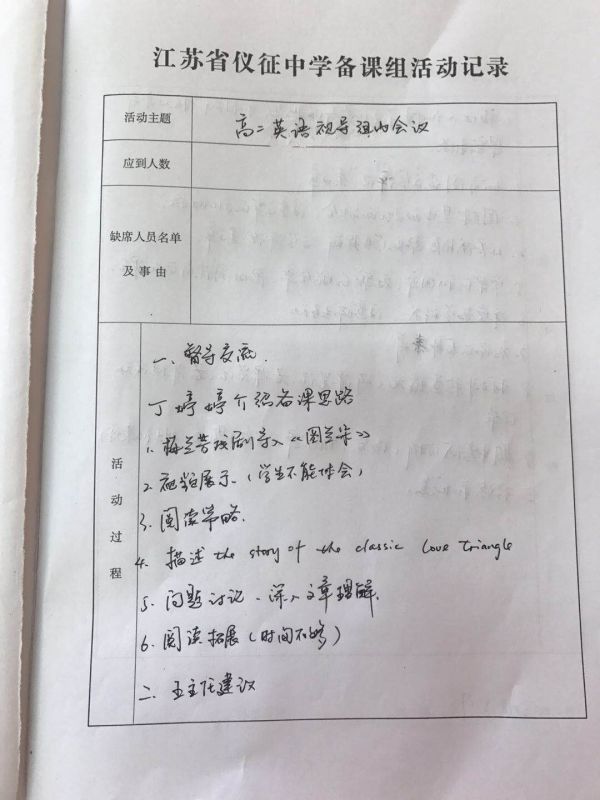 江苏省仪征中学备课组活动记录
活动主题
高二英语视导组内会议
应到人数
缺席人员名单
及事由
活动过程
一、督导交流.
丁婷婷介绍备课思路
1. 梅兰芳戏剧导入《图兰朵》
2. 视频展示.(学生不能体会)
3. 阅读策略.
4. 描述 the story of the classic love triangle
5. 问题讨论、深入文章理解.
6. 阅读拓展(时间不够)
二、王主任建议